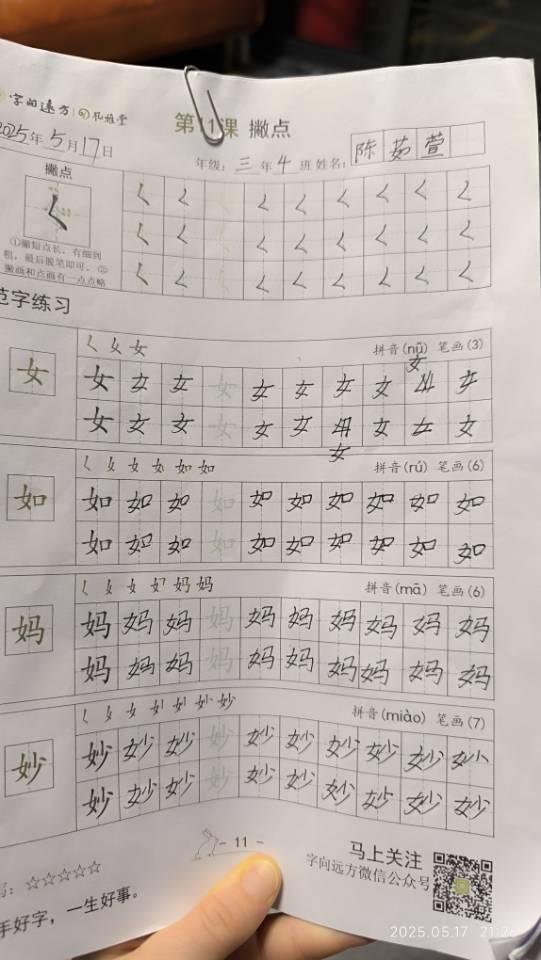 字向远方 孔雅堂
第11课 撇点
2025年5月17日
年级:三年4班 姓名:陈茹萱
撇点
①撇短点长,有细到
粗,最后顿笔即可。②
撇画和点画有一点点略
范字练习
女 拼音(nǚ) 笔画(3)
女 女 女 女 女 女 女 女 女
女
女 女 女 女 女 女 女 女 女
女
如 如 拼音(rú) 笔画(6)
如
如 如 如 如 如 如 如 如 如 如
如 如 如 如 如 如 如 如 如 如
妈 妈 拼音(mā) 笔画(6)
妈
妈 妈 妈 妈 妈 妈 妈 妈 妈 妈
妈 妈 妈 妈 妈 妈 妈 妈 妈 妈
妙 拼音(miào) 笔画(7)
妙
妙 妙 妙 妙 妙 妙 妙 妙 妙 妙
妙 妙 妙 妙 妙 妙 妙 妙 妙 妙
- 11 -
马上关注
字向远方微信公众号
☆☆☆☆☆
手好字,一生好事。
2025.05.17 21:26